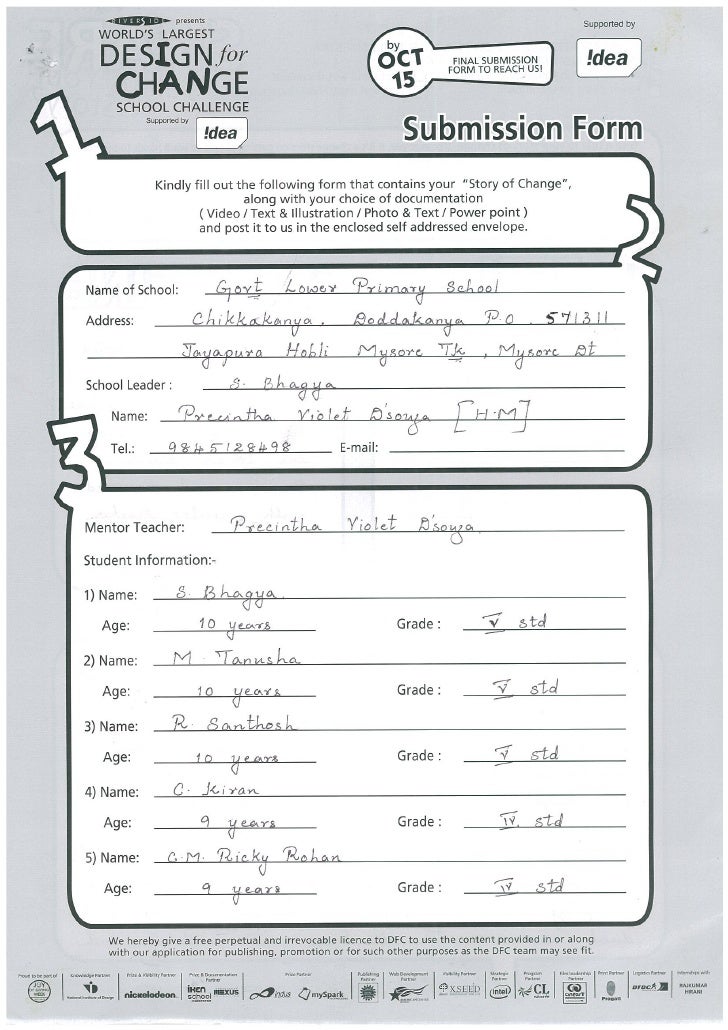 RIVERSIDE presents
WORLD'S LARGEST
DESIGN for
CHANGE
SCHOOL CHALLENGE
Supported by
!dea
by
OCT
15
FINAL SUBMISSION
FORM TO REACH US!
Supported by
!dea
Submission Form
1
Kindly fill out the following form that contains your "Story of Change",
along with your choice of documentation
( Video / Text & Illustration / Photo & Text / Power point )
and post it to us in the enclosed self addressed envelope.
2
Name of School: Govt Lower Primary School
Address: Chikkakanya, Doddakanya P.O. 571311
Jayapura Hobli Mysore Tk, Mysore Dt
School Leader : S. Bhagya
Name: Precintha Violet D'souza [H.M]
Tel.: 9845128498 E-mail:
3
Mentor Teacher: Precintha Violet D'souza
Student Information:-
1) Name: S. Bhagya.
Age: 10 years Grade : V std
2) Name: M. Tanusha
Age: 10 years Grade : V std
3) Name: R. Santhosh
Age: 10 years Grade : V std
4) Name: C. Kiran
Age: 9 years Grade : IV. std
5) Name: C.M. Ricky Rohan
Age: 9 years Grade : IV std
We hereby give a free perpetual and irrevocable licence to DFC to use the content provided in or along
with our application for publishing, promotion or for such other purposes as the DFC team may see fit.
Proud to be part of Knowledge Partner Prize & Visibility Partner Prize & Documentation Partner Prize Partner Publishing Partner Web Development Partner Visibility Partner Strategic Partner Program Partner Kids Leadership Partner Print Partner Logistics Partner Internships with
JOY OF GIVING WEEK National Institute of Design nickelodeon. iken school NEXUS indus mySpark XSEED intel CL Pragati DTDC RAJKUMAR HIRANI